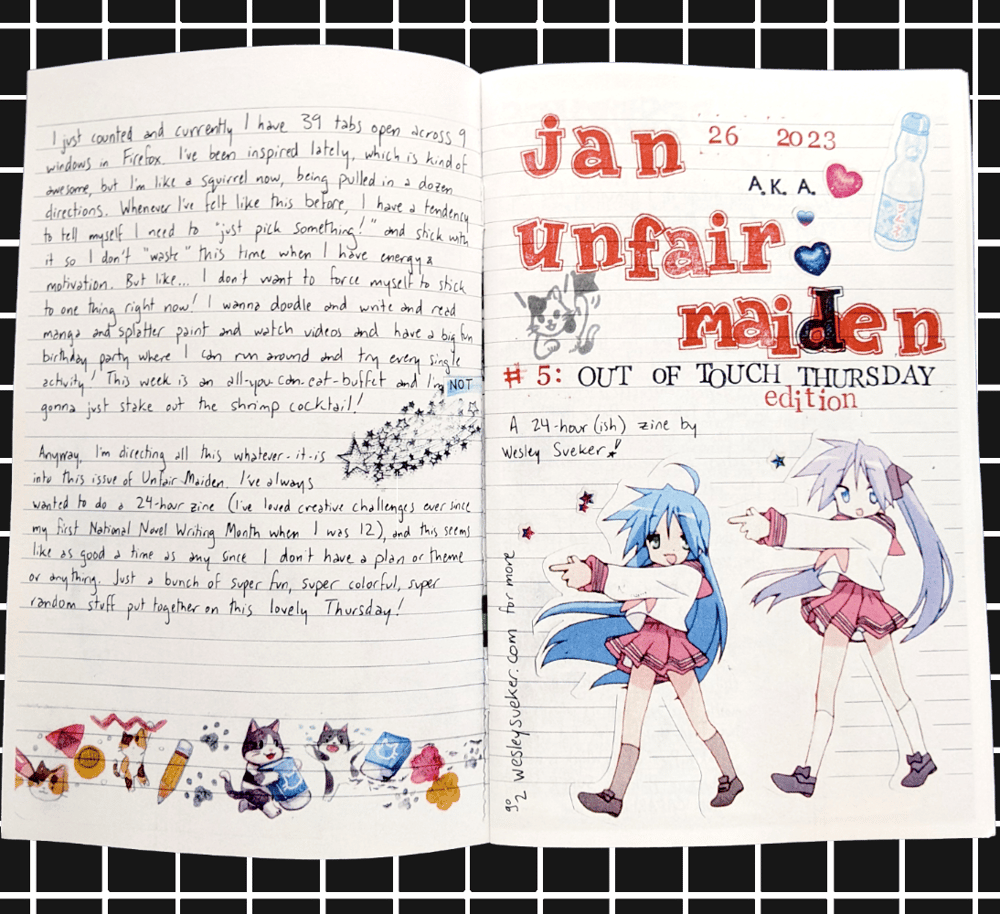 I just counted and currently I have 39 tabs open across 9
windows in Firefox. I've been inspired lately, which is kind of
awesome, but I'm like a squirrel now, being pulled in a dozen
directions. Whenever I've felt like this before, I have a tendency
to tell myself I need to "just pick something!" and stick with
it so I don't "waste" this time when I have energy &
motivation. But like... I don't want to force myself to stick
to one thing right now! I wanna doodle and write and read
manga and splatter paint and watch videos and have a big fun
birthday party where I can run around and try every single
activity! This week is an all-you-can-eat-buffet and I'm NOT
gonna just stake out the shrimp cocktail!
Anyway, I'm directing all this whatever-it-is
into this issue of Unfair Maiden. I've always
wanted to do a 24-hour zine (I've loved creative challenges ever since
my first National Novel Writing Month when I was 12), and this seems
like as good a time as any since I don't have a plan or theme
or anything. Just a bunch of super fun, super colorful, super
random stuff put together on this lovely Thursday!
jan 26 2023
A.K.A.
unfair
maiden
# 5: OUT OF TOUCH THURSDAY
edition
A 24-hour(ish) zine by
Wesley Sveker!
go 2 wesleysveker.com for more